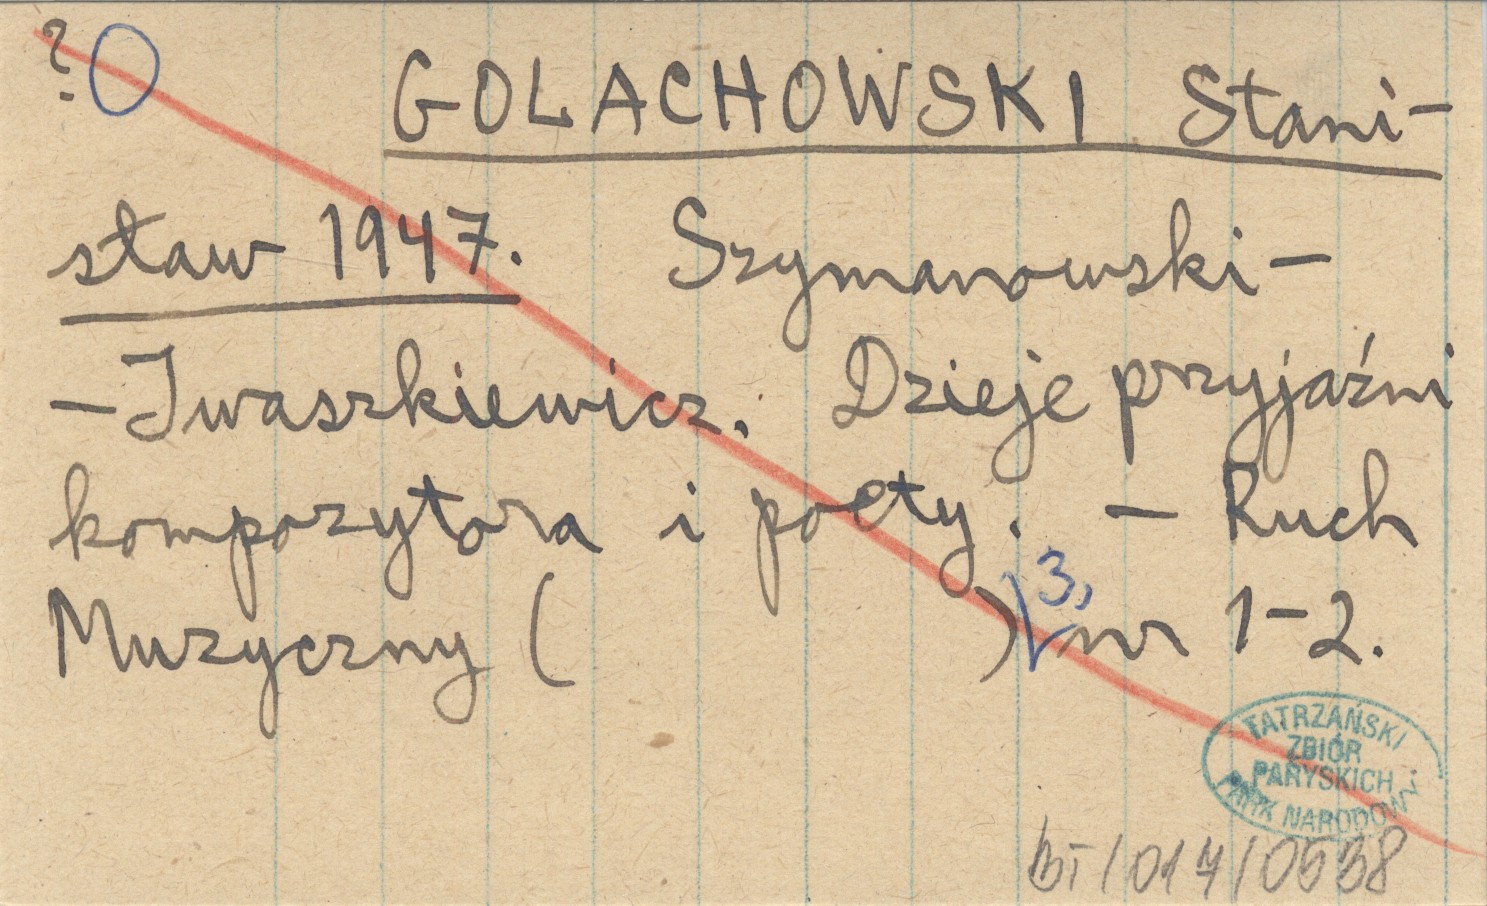 ? O
GOLACHOWSKI Stani-
sław 1947. Szymanowski-
-Iwaszkiewicz. Dzieje przyjaźni
kompozytora i poety. - Ruch
Muzyczny ( ) 3, nr 1-2.
TATRZAŃSKI
ZBIÓR
PARYSKICH
PARK NARODOWY
BT/017/0538